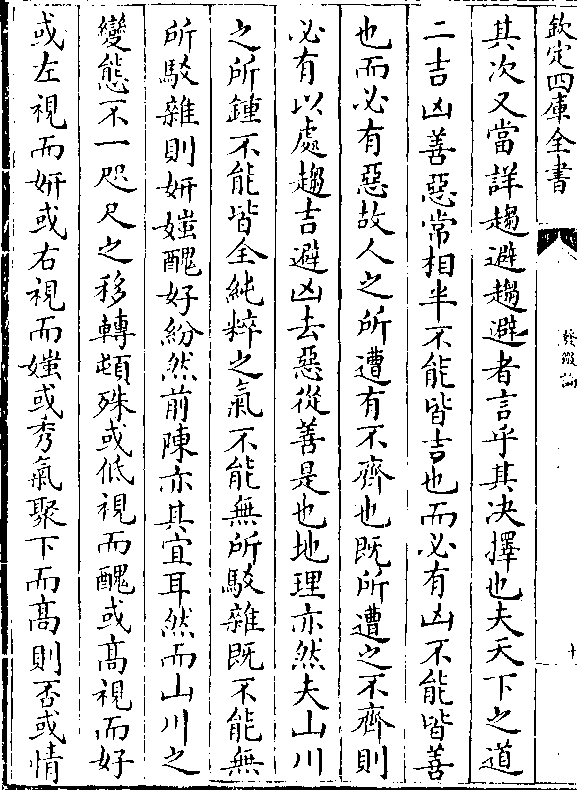 欽定四庫全書
發微論
十
其次又當詳趨避趨避者言乎其决擇也夫天下之道
二吉凶善惡常相半不能皆吉也而必有凶不能皆善
也而必有惡故人之所遭有不齊也既所遭之不齊則
必有以處趨吉避凶去惡從善是也地理亦然夫山川
之所鍾不能皆全純粹之氣不能無所駁雜既不能無
所駁雜則妍媸醜好紛然前陳亦其宜耳然而山川之
變態不一咫尺之移轉頓殊或低視而醜或髙視而好
或左視而妍或右視而媸或秀氣聚下而髙則否或情